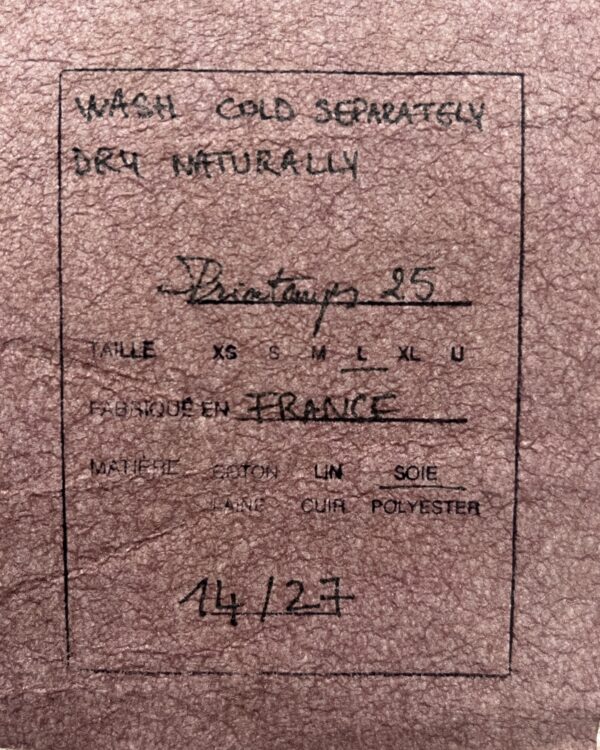 WASH COLD SEPARATELY
DRY NATURALLY
Printemps 25
TAILLE XS S M L XL U
FABRIQUÉ EN FRANCE
MATIÈRE COTON LIN SOIE
LAINE CUIR POLYESTER
14/27